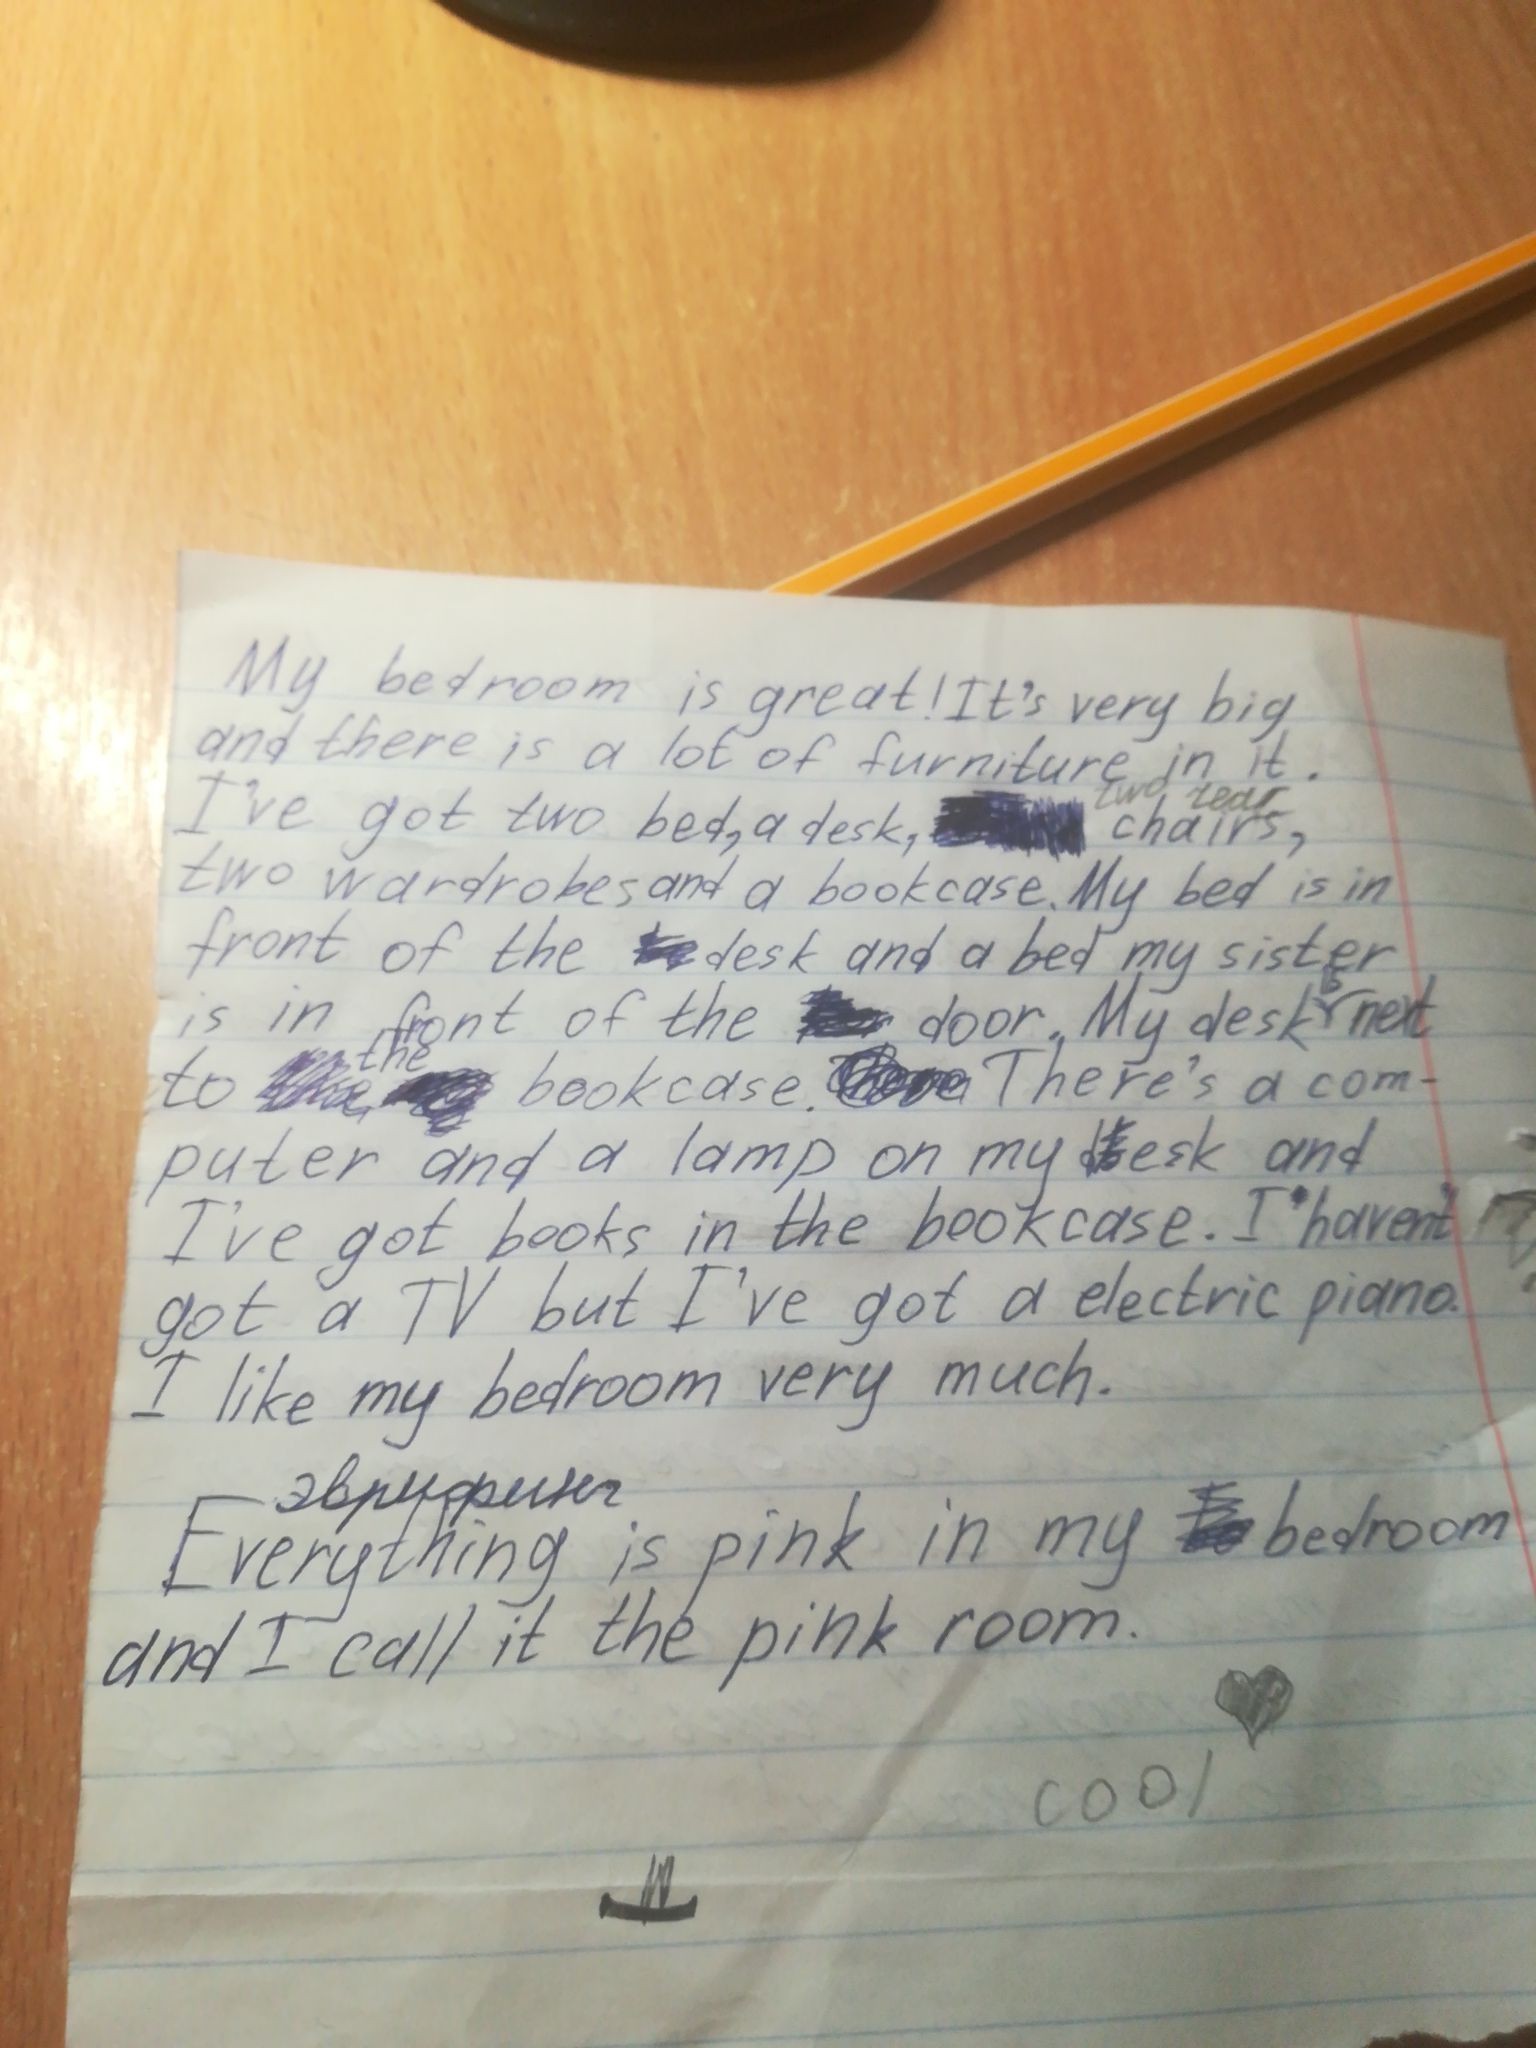 My bedroom is great! It's very big
and there is a lot of furniture in it.
two
I've got two bed, a desk, chairs,
two wardrobes and a bookcase. My bed is in
front of the desk and a bed my sister
is in front of the door. My desk is next
the
to bookcase. There's a com-
puter and a lamp on my desk and
I've got books in the bookcase. I haven't
got a TV but I've got a electric piano.
I like my bedroom very much.
эврифинг
Everything is pink in my bedroom
and I call it the pink room.
cool